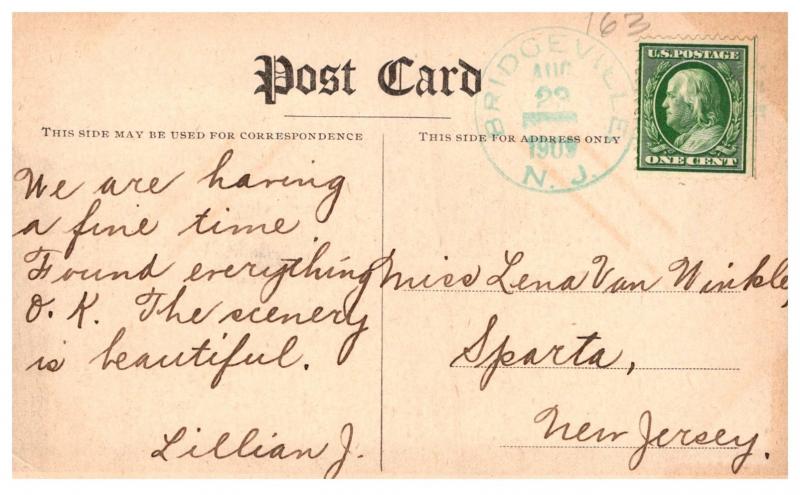 163
Post Card
BRIDGEVILLE
AUG
23
1909
N. J.
U.S. POSTAGE
ONE CENT
THIS SIDE MAY BE USED FOR CORRESPONDENCE
THIS SIDE FOR ADDRESS ONLY
We are having
a fine time
Found everything
O. K. The scenery
is beautiful.
Lillian J.
Miss Lena Van Winkle,
Sparta,
New Jersey.